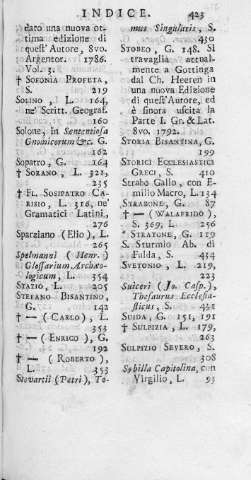 INDICE. 423
dato una nuova ot-
tima edizione di
quest' Autore, 8vo.
Argentor. 1786.
Vol. 3.
† SOFONIA PROFETA,
S. 219
SOLINO, L. 164,
ne' Scritt. Geografi.
160
Solone, in Sententiosa
Gnomicorum &c. G.
Sopatro, G. 164
† SORANO, L. 322,
235
† FL. SOSIPATRO CA-
RISIO, L. 316, ne'
Gramatici Latini,
276
Sparziano (Elio), L.
265
Spelmanni (Henr.)
Glossarium Archæo-
logicum, L. 354
STAZIO, L. 205
STEFANO BISANTINO,
G. 142
† — (CARLO), L.
353
† — (ENRICO), G.
192
† — (ROBERTO),
L. 353
Stovartii (Petri), To-
mus Singularis, S.
450
STOBEO, G. 148. Si
travaglia attual-
mente a Gottinga
dal Ch. Heeren in
una nuova Edizione
di quest' Autore, ed
è sinora uscita la
Parte I. Gr. & Lat.
8vo. 1792.
STORIA BISANTINA, G.
199
STORICI ECCLESIASTICI
GRECI, S. 410
Strabo Gallo, con E-
milio Macro, L. 134
STRABONE, G. 87
† — (WALAFRIDO),
S. 369, L. 256
* STRATONE, G. 119
S. Sturmio Ab. di
Fulda, S. 454
SVETONIO, L. 219,
223
Suiceri (Jo. Casp.),
Thesaurus Ecclesia-
sticus, S. 421
SUIDA, G. 151, 191
† SULPIZIA, L. 179,
263
SULPIZIO SEVERO, S.
308
Sybilla Capitolina, con
Virgilio, L. 93